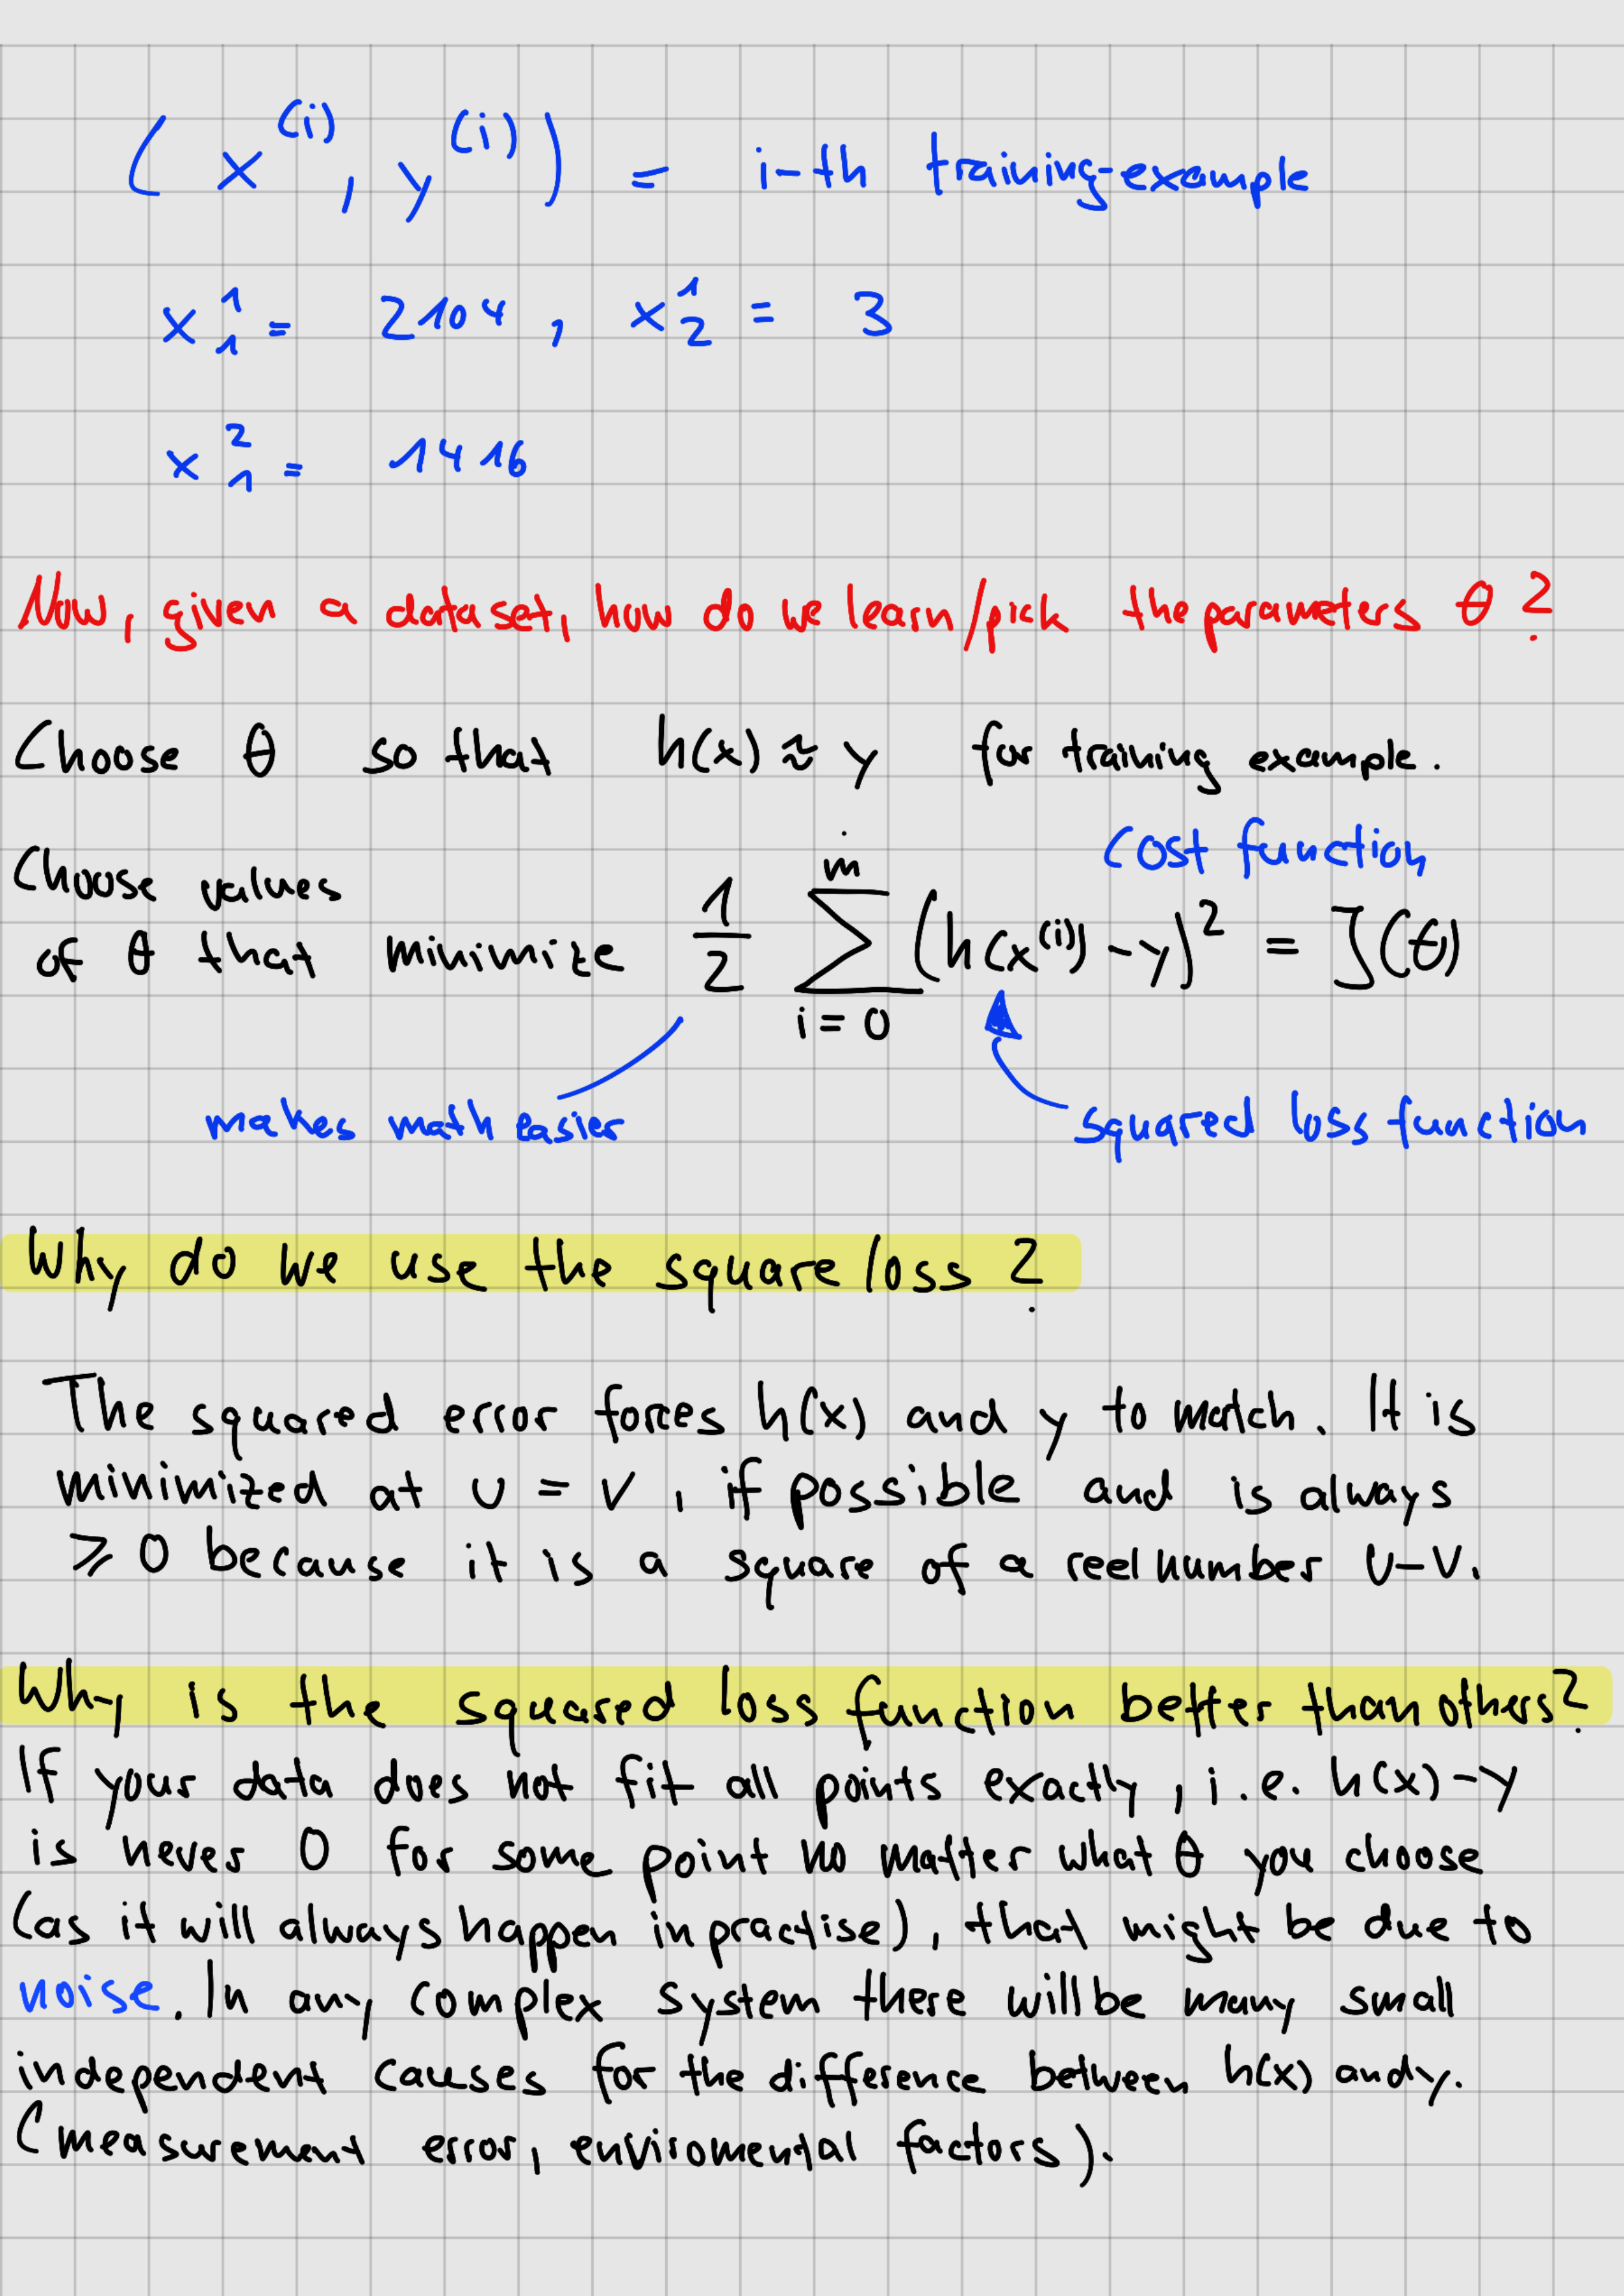 (x^(i), y^(i)) = i-th training-example
x_1^1 = 2104, x_2^1 = 3
x_1^2 = 1416
Now, given a dataset, how do we learn/pick the parameters θ?
Choose θ so that h(x) ≈ y for training example.
Cost function
Choose values
of θ that minimize 1/2 ∑_{i=0}^{m} (h(x^(i)) - y)^2 = J(θ)
makes math easier
squared loss function
Why do we use the square loss?
The squared error forces h(x) and y to match. It is
minimized at u = v, if possible and is always
≥ 0 because it is a square of a reel number u-v.
Why is the squared loss function better than others?
If your data does not fit all points exactly, i.e. h(x)-y
is never 0 for some point no matter what θ you choose
(as it will always happen in practise), that might be due to
noise. In any complex system there will be many small
independent causes for the difference between h(x) and y.
(measurement error, enviromental factors).